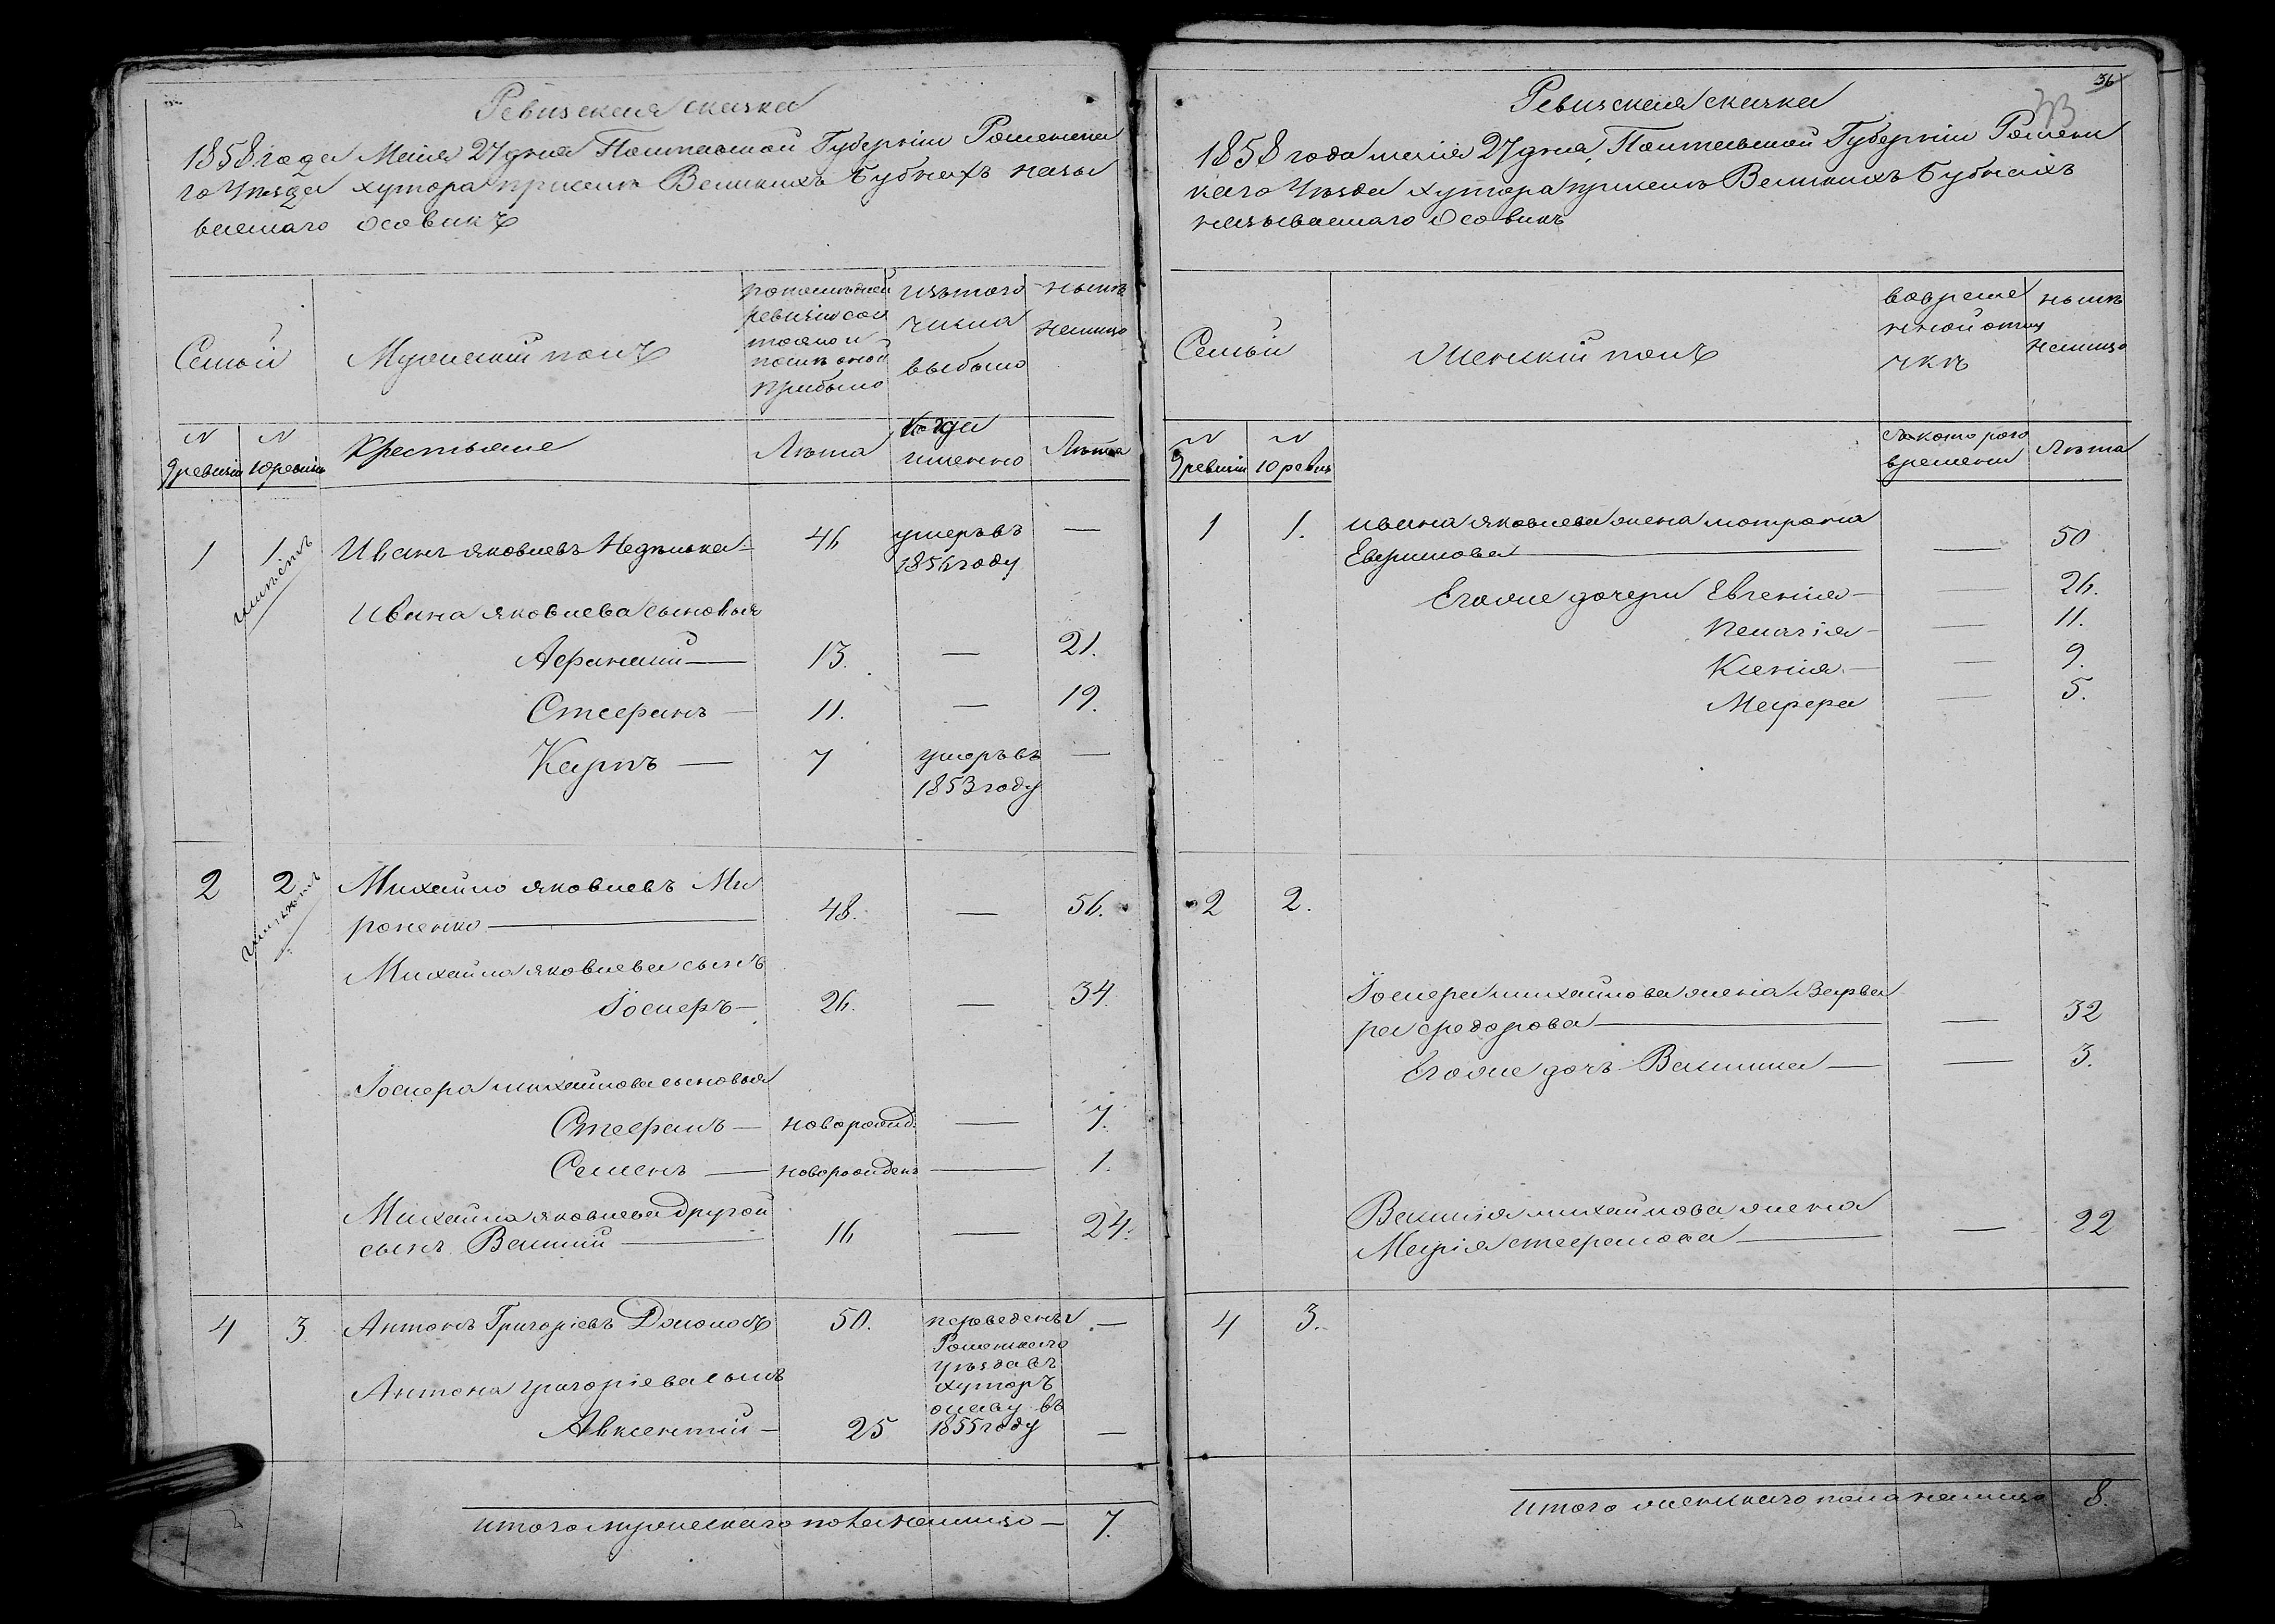 Ревизская сказка
1858 года Маія 27 дня Полтавской Губерніи Роменска
го Уезда хутора присел. Великихъ Бубнахъ назы
ваемаго Осовикъ
Семьи
Мужескій полъ
по последней
ревизіи сос
тояло и
после оной
прибыло
изъ того
числа
выбыло
ныне
налицо
N
9 ревизіи
N
10 ревизіи
Крестьяне
Лета
Когда
именно
Лета
1 1. Иванъ Яковлевъ Неделька — 46 умеръ въ —
1856 году
Ивана Яковлева сыновья
Афанасий — 13. — 21.
Стефанъ — 11. — 19.
Карпъ — 7 умеръ въ —
1853 году
2 2 Михайло Яковлевъ Ми
роненко — 48. — 56.
Михайла Яковлева сынъ
Іосифъ — 26. — 34.
Іосифа Михайлова сыновья
Стефанъ — новорожд: — 7.
Семенъ — новорожденъ — 1.
Михайла Яковлева другой
сынъ Василий — 16 — 24.
4 3 Антонъ Григоріевъ 50. переведенъ —
Роменскаго
уезда въ
хуторъ
въ
1855 году
Антона Григоріева сынъ
Авксентий — 25 —
Итого мужескаго пола налицо — 7.
36
33
Ревизская сказка
1858 года маія 27 дня, Полтавской Губерніи Роменс
каго Уезда хутора присел. Великихъ Бубнахъ
называемаго Осовикъ
Семьи
Женскій полъ
во време
нной отлу
чке
ныне
налицо
N
9 ревизіи
N
10 ревиз
съ котораго
времени
Лета
1 1. Ивана Яковлева жена Мотрона
— — 50
Его же дочери Евгенія — — 26.
Пелагія — — 11.
Ксенія — — 9.
Марфа — 5.
2 2.
Іосифа Михайлова жена Варва
ра Федорова — — 32
Его же дочь Василиса — — 3.
Василія Михайлова жена
Марія Стефанова — — 22
4 3.
Итого женскаго пола налицо 8.